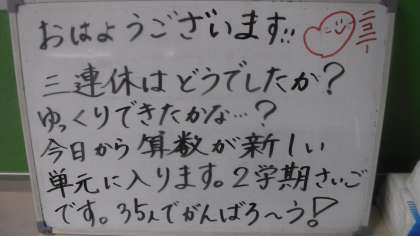 おはようございます!!
三連休はどうでしたか?
ゆっくりできたかな…?
今日から算数が新しい
単元に入ります。2学期さいご
です。35人でがんばろ〜う!